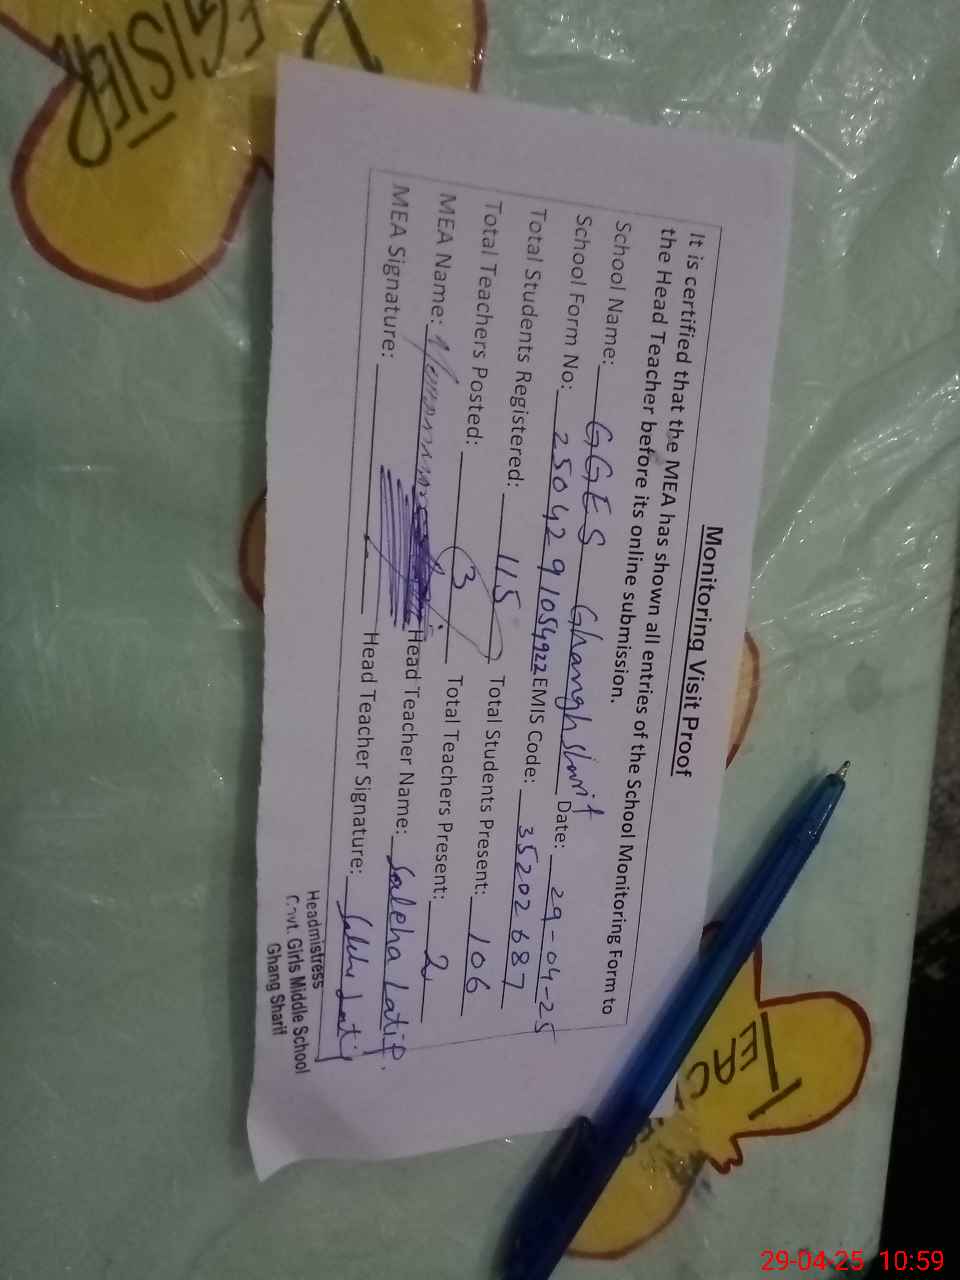 REGISTER
Monitoring Visit Proof
It is certified that the MEA has shown all entries of the School Monitoring Form to
the Head Teacher before its online submission.
School Name: GGES Ghangh sharif Date: 29-04-25
School Form No: 250429 91054922 EMIS Code: 35202687
Total Students Registered: 115 Total Students Present: 106
Total Teachers Posted: 3 Total Teachers Present: 2
MEA Name: Head Teacher Name: Saleha Latif.
MEA Signature: Head Teacher Signature: Saleha Latif
Headmistress
Govt. Girls Middle School
Ghang Sharif
TEAC
29-04-25 10:59